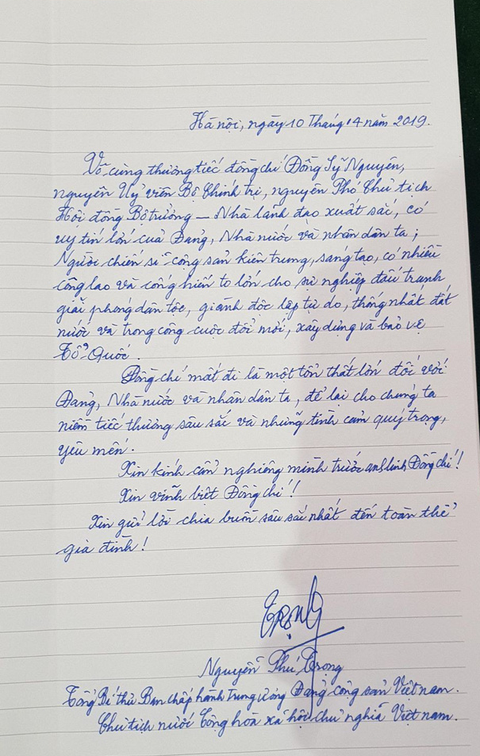 Hà nội, ngày 10 tháng 4 năm 2019.
Vô cùng thương tiếc đồng chí Đồng Sỹ Nguyên,
nguyên Uỷ viên Bộ Chính trị, nguyên Phó Chủ tịch
Hội đồng Bộ trưởng – Nhà lãnh đạo xuất sắc, có
uy tín lớn của Đảng, Nhà nước và nhân dân ta;
Người chiến sĩ cộng sản kiên trung, sáng tạo, có nhiều
công lao và cống hiến to lớn cho sự nghiệp đấu tranh
giải phóng dân tộc, giành độc lập tự do, thống nhất đất
nước và trong công cuộc đổi mới, xây dựng và bảo vệ
Tổ Quốc.
Đồng chí mất đi là một tổn thất lớn đối với
Đảng, Nhà nước và nhân dân ta, để lại cho chúng ta
niềm tiếc thương sâu sắc và những tình cảm quý trọng,
yêu mến.
Xin kính cẩn nghiêng mình trước anh linh Đồng chí!
Xin vĩnh biệt Đồng chí!
Xin gửi lời chia buồn sâu sắc nhất đến toàn thể
gia đình!
Trọng
Nguyễn Phú Trọng
Tổng Bí thư Ban chấp hành Trung ương Đảng cộng sản Việt nam.
Chủ tịch nước Cộng hoà xã hội chủ nghĩa Việt nam.